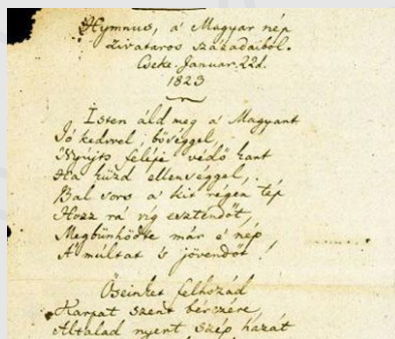 Hymnus, a' Magyar nép
zivataros századaiból.
Cseke. Januar. 22d.
1823
Isten áld meg a' Magyart
Jó kedvvel, bőséggel,
Nyújts feléje védő kart
Ha küzd ellenséggel,
Bal sors a' kit régen tép
Hozz rá víg esztendőt,
Megbűnhödte már e' nép
A' múltat 's jövendőt!
Őseinket felhozád
Kárpát szent bérczére,
Általad nyert szép hazát